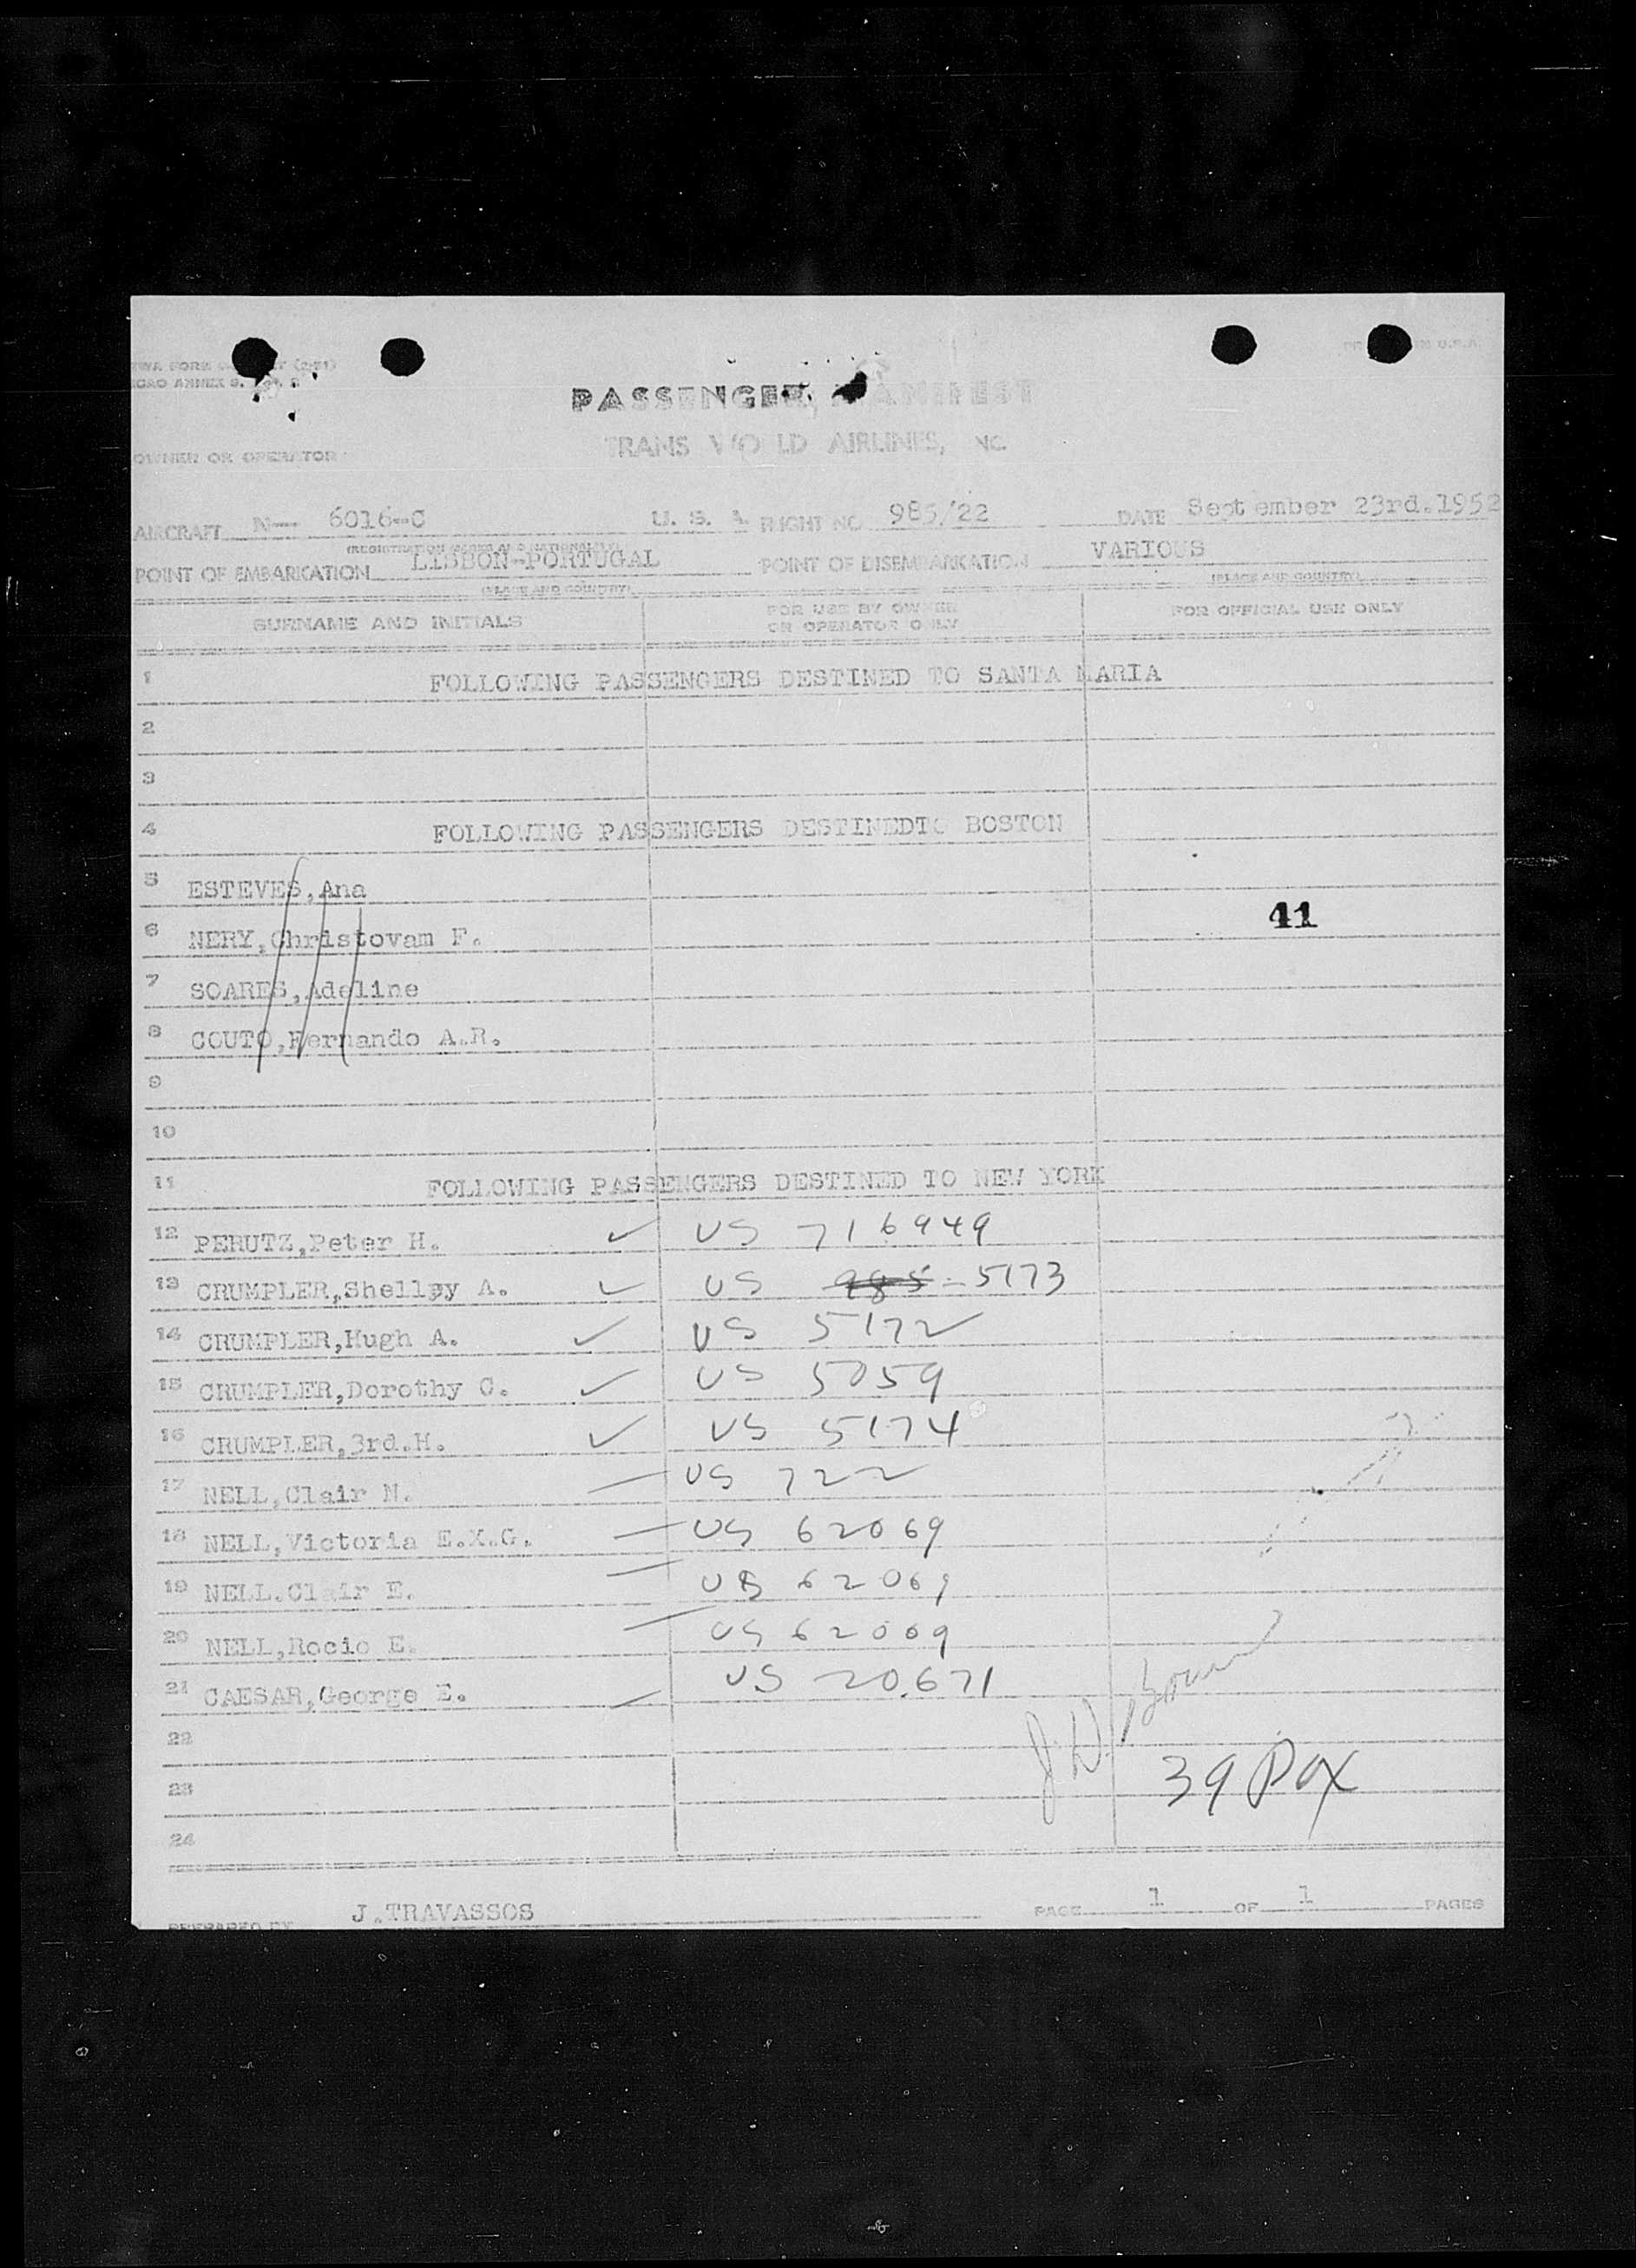 TWA FORM (2-51)
ICAO ANNEX 9.
PASSENGER MANIFEST
TRANS WORLD AIRLINES, INC.
OWNER OR OPERATOR
AIRCRAFT N-- 6016-C U. S. A FLIGHT NO 985/22 DATE September 23rd.1952
(REGISTRATION MARKS AND NATIONALITY)
POINT OF EMBARKATION LISBON-PORTUGAL POINT OF DISEMBARKATION VARIOUS
(PLACE AND COUNTRY) (PLACE AND COUNTRY)
SURNAME AND INITIALS FOR USE BY OWNER OR OPERATOR ONLY FOR OFFICIAL USE ONLY
1 FOLLOWING PASSENGERS DESTINED TO SANTA MARIA
2
3
4 FOLLOWING PASSENGERS DESTINEDTO BOSTON
5 ESTEVES,Ana
41
6 NERY,Christovam F.
7 SOARES,Adeline
8 COUTO,Fernando A.R.
9
10
11 FOLLOWING PASSENGERS DESTINED TO NEW YORK
12 PERUTZ,Peter H. ✓ US 716949
13 CRUMPLER,Shelley A. ✓ US 985 - 5173
14 CRUMPLER,Hugh A. ✓ US 5172
15 CRUMPLER,Dorothy C. ✓ US 5059
16 CRUMPLER,3rd.H. ✓ US 5174
17 NELL,Clair N. US 722
18 NELL,Victoria E.X.G. US 62069
19 NELL.Clair E. US 62069
20 NELL,Rocio E. US 62069
21 CAESAR,George E. US 20671
22
23 39 Pax
24
PREPARED BY J.TRAVASSOS PAGE 1 OF 1 PAGES